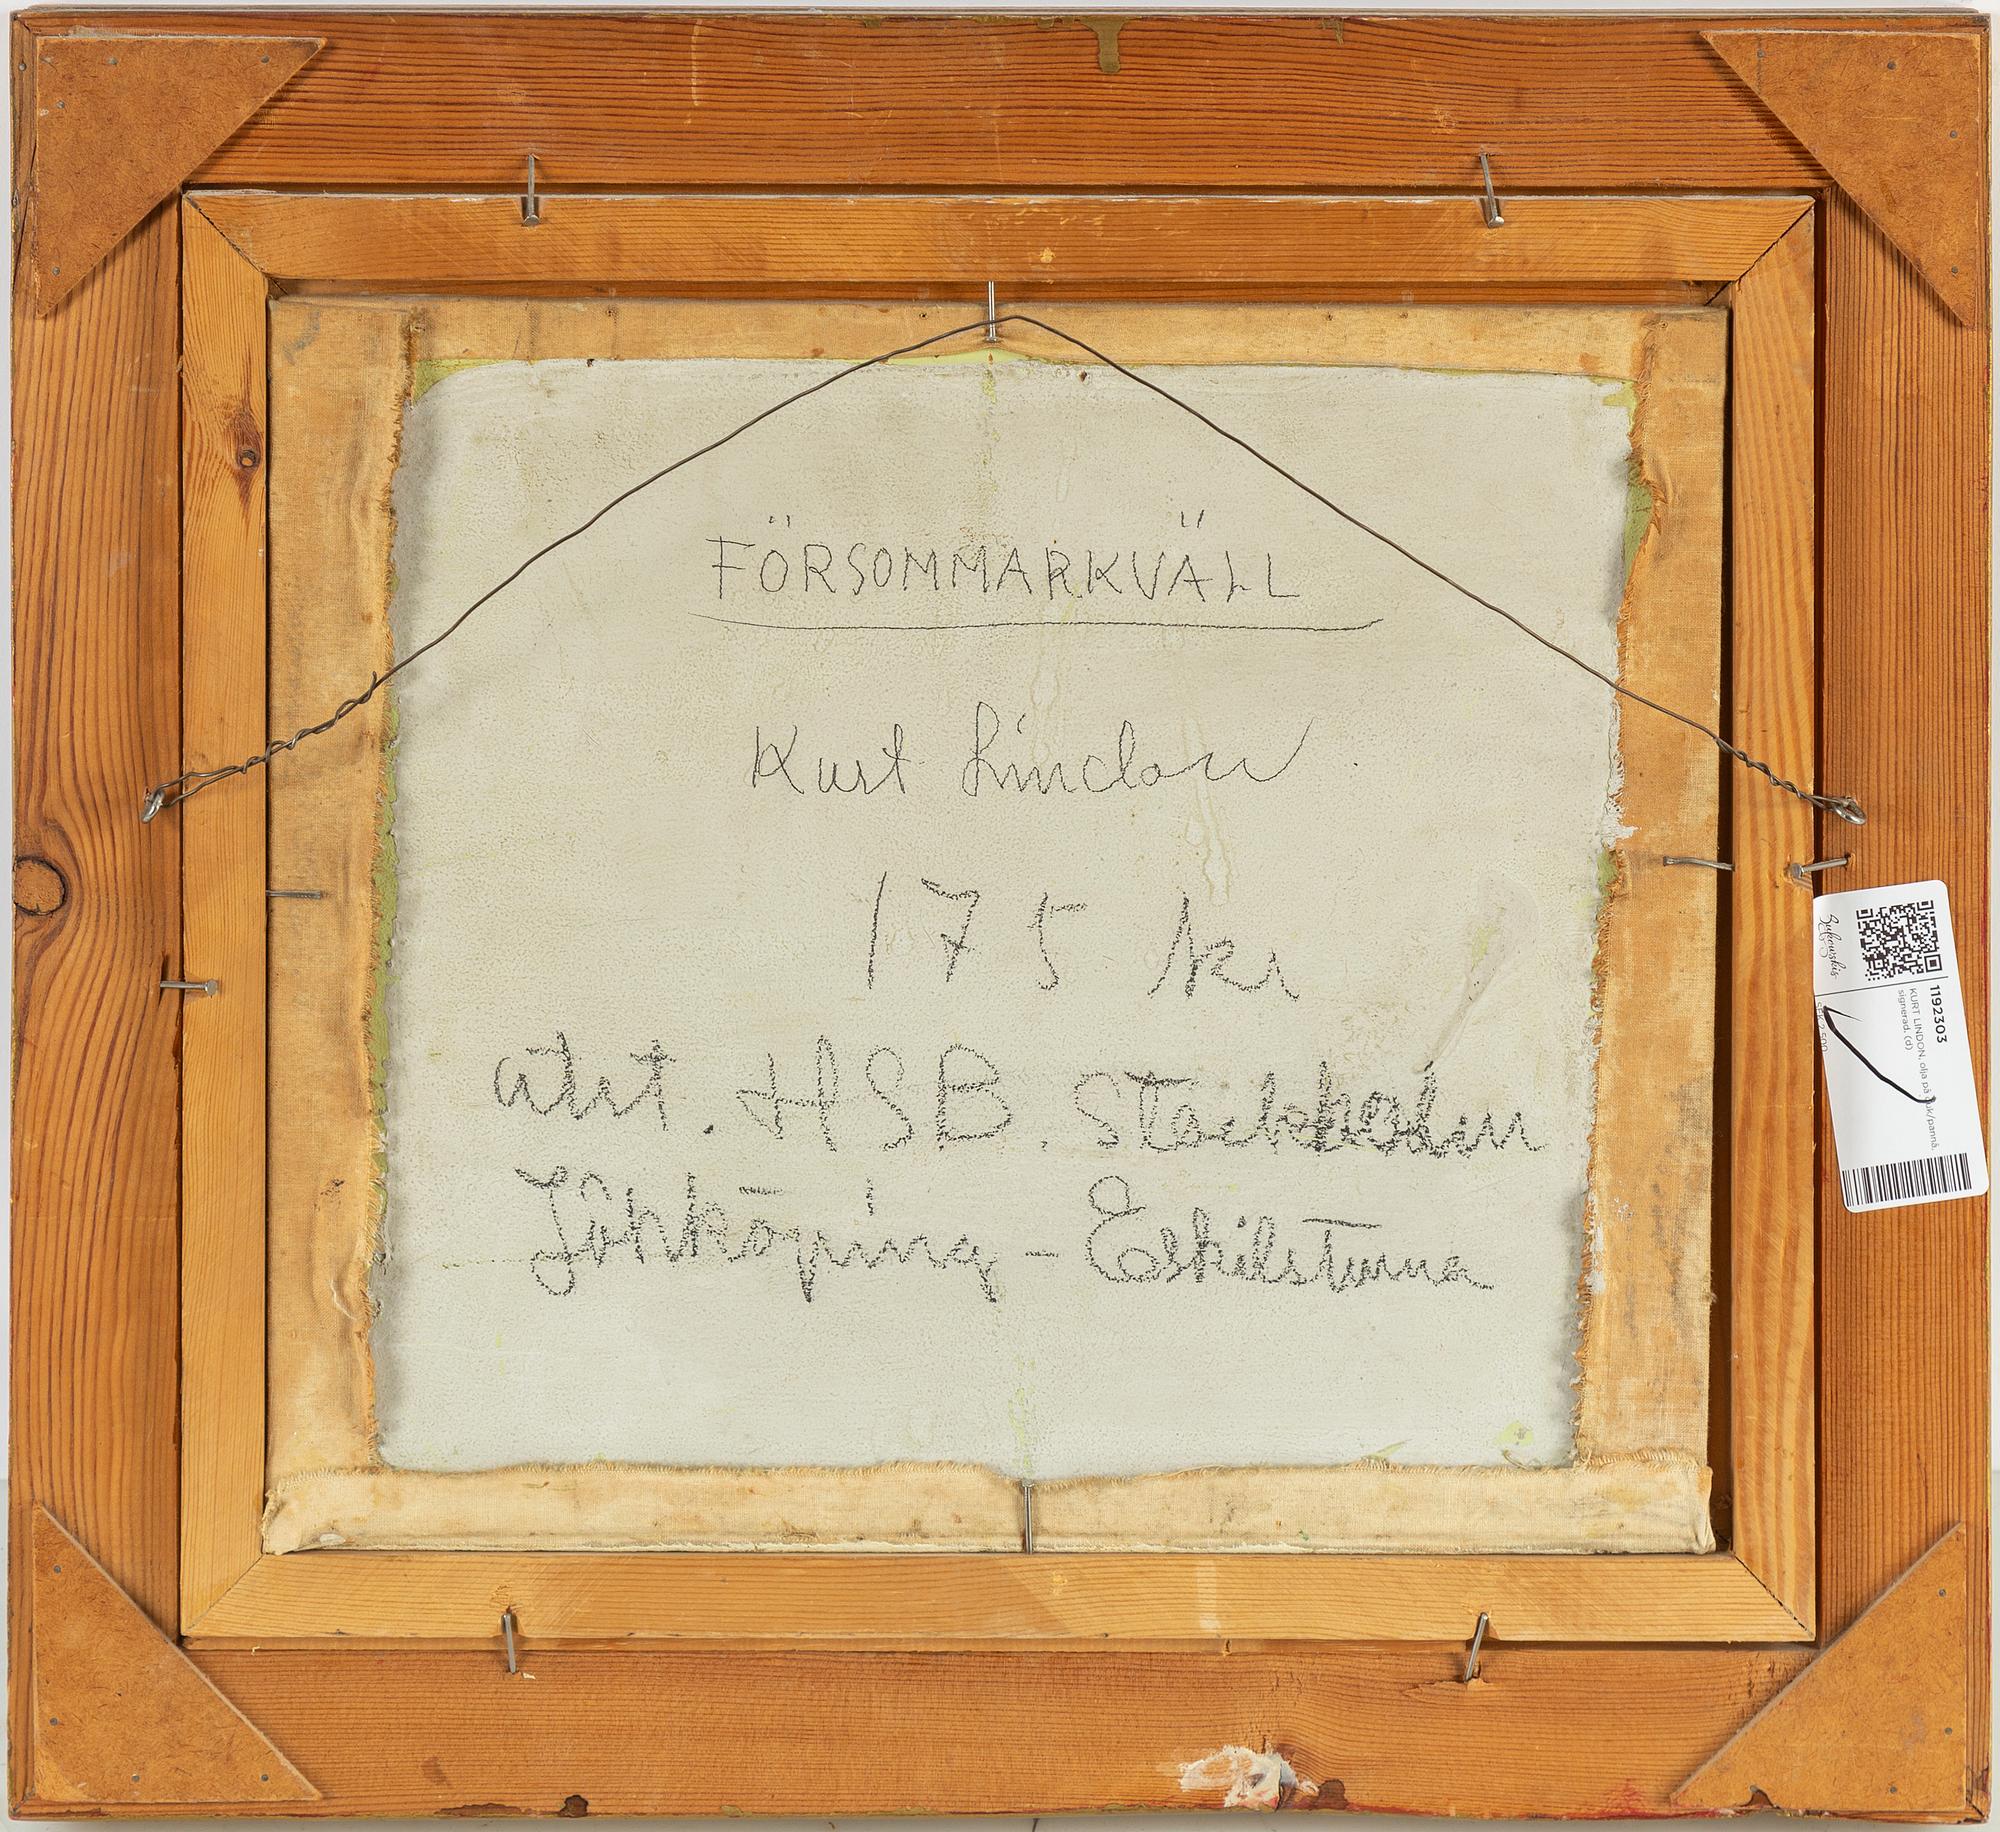 FÖRSOMMARKVÄLL
Kurt Lindon
175 kr
utst. HSB. Stockholm
Jönköping - Eskilstuna
Bukowskis
1192303
KURT LINDON, olja på duk/pannå,
signerad. (d)
SEK 2 500